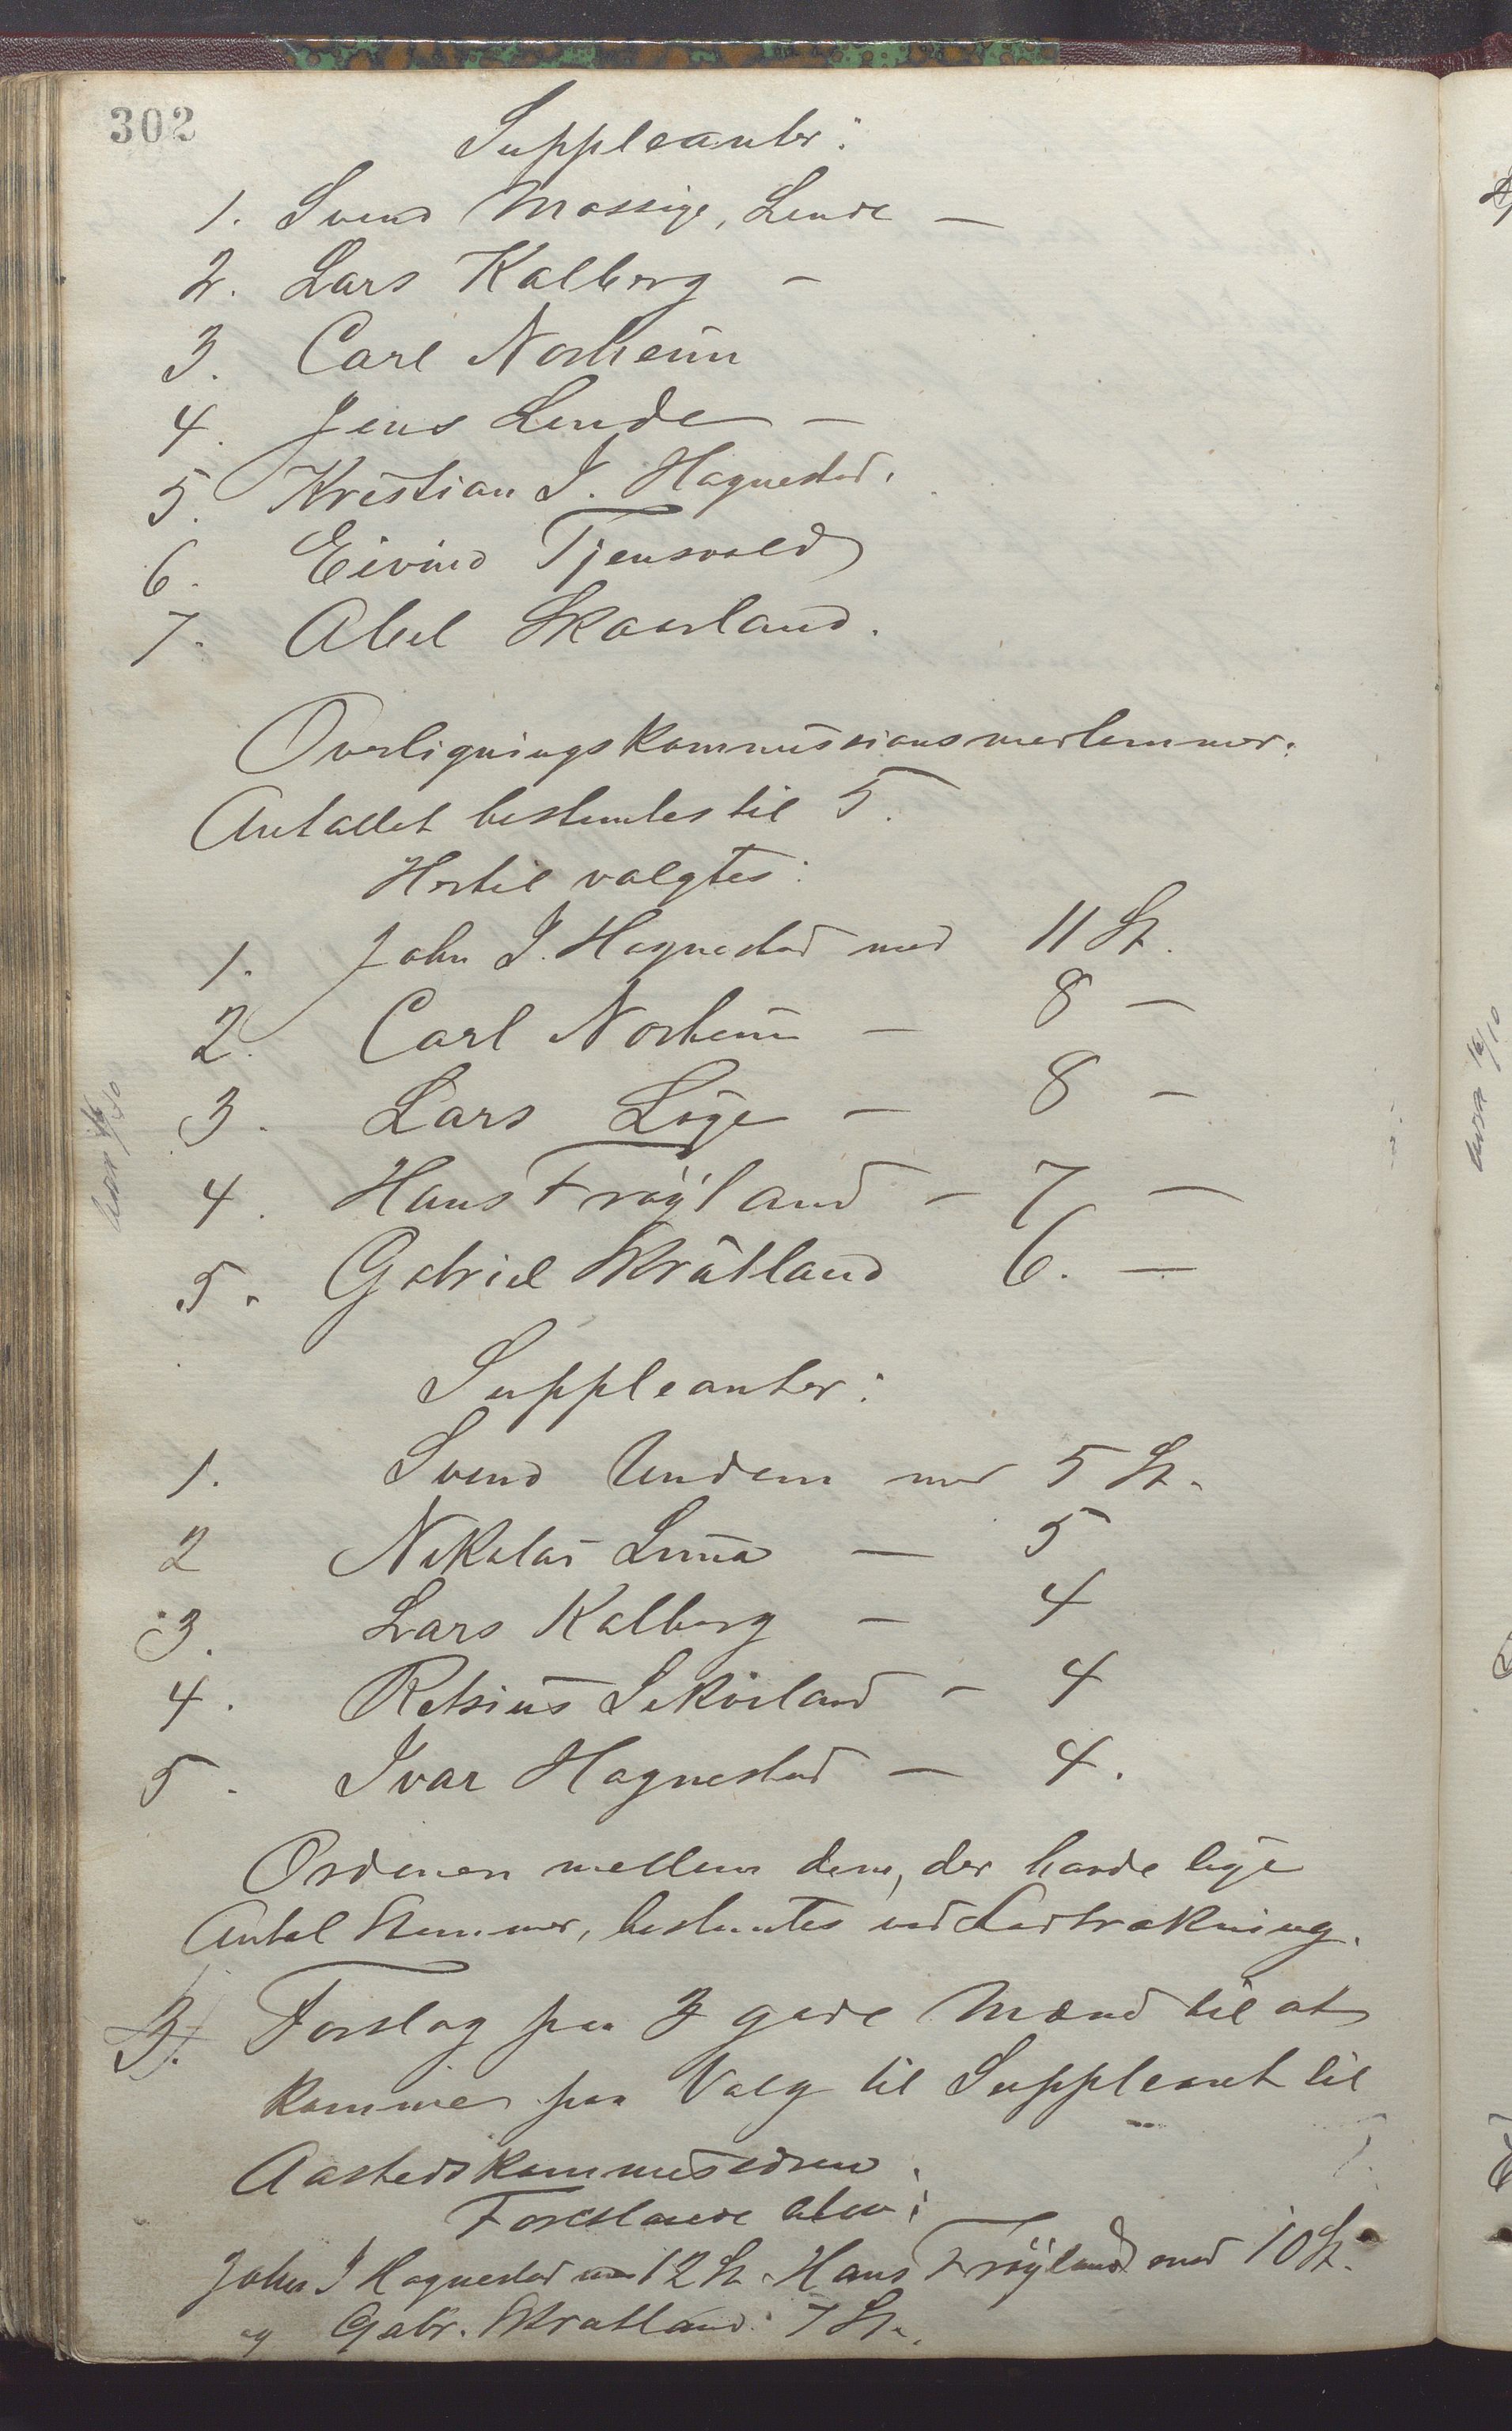 302
Suppleanter:
1. Svend Mossige, Lende —
2. Lars Kalberg —
3. Carl Norheim
4. Jens Lende —
5. Kristian I. Hognestad.
6. Eivind Tjensvold
7. Abel Skaarland.
Overligningskommissionsmedlemmer.
Antallet bestemtes til 5.
Hertil valgtes:
1. John I. Hognestad med 11 St.
2. Carl Norheim — 8 —
3. Lars Løge — 8 —
4. Hans Frøyland — 7 —
5. Gabriel Skratland 6. —
Suppleanter:
1. Svend Undem med 5 St.
2 Nikolai Lima — 5
3. Lars Kalberg — 4
4. Retsius Sikvaland — 4
5. Ivar Hognestad — 4.
Ordenen mellem dem, der havde lige
Antal Stemmer, bestemtes ved Lodtrækning.
3. Forslag paa 3 gode Mænd til at
komme paa Valg til Suppleant til
Aastedskommissionen.
Foreslaaede blev:
John I Hognestad med 12 St. Hans Frøyland med 10 St.
og Gabr. Skratland 7 St.